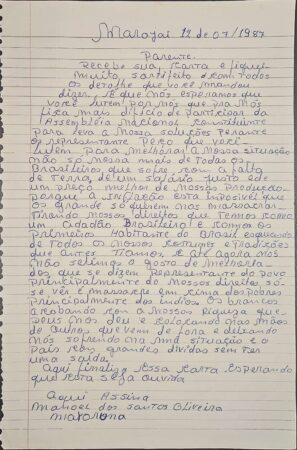 Marajaí 12 de 07/1987
Parente.
Recebe sua, carta e fiquei
muito, sastifeito com todos
os detalhe que você mandou
dizer. É que nós esperamos que
você lutem por nós que pra nós
fica mais difício de participar da
Assembleia Nacional constituinte
para leva a nossa soluções perante
os representant. Peço que você
lutem para melhorar a nossa situação
não só nossa mais de todas os
Brasileiros que sofre com a falta
de terra de um salário justo e de
um preço melhor de nossos produção
porque a inflação esta impocivel que
os grande só subiram nos
tirando nossos direitos que temos como
um cidadão Brasileiro! e somos os
primeiros habitante do Brasil
de todos os nossos costume e tradições
que antes tiamos. e até agora nós
não setimos o gosto de melhorta
dos que se dizem representante do povo
principalmente do nossos direitos só
se vên é massacre em cima dos pobres
principalmente dos índios os brancos
acabando com a nossas riqueza que
Deus nós deu e colocando nas mãos
de outros que vem de fora e deixando
nós sofrendo na má situação e o
país com grandes dividas sem ter
uma saida.
Aqui finalizo essa carta esperando
que esta seja ouvida
Aqui Assina
Manoel dos Santos Oliveira